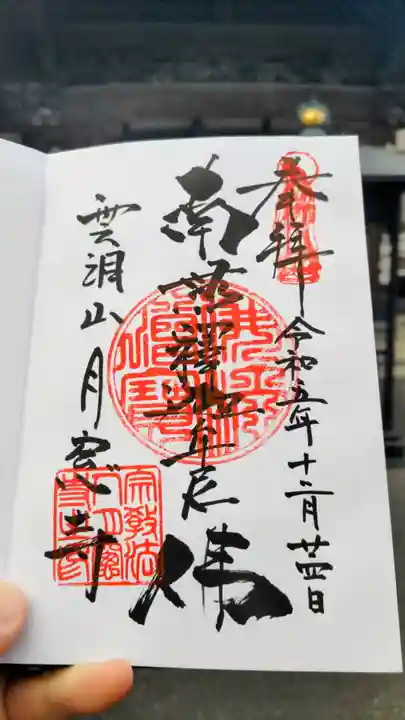 奉拝
令和五年十二月廿四日
南無釋迦牟尼佛
雲洞山月窓寺